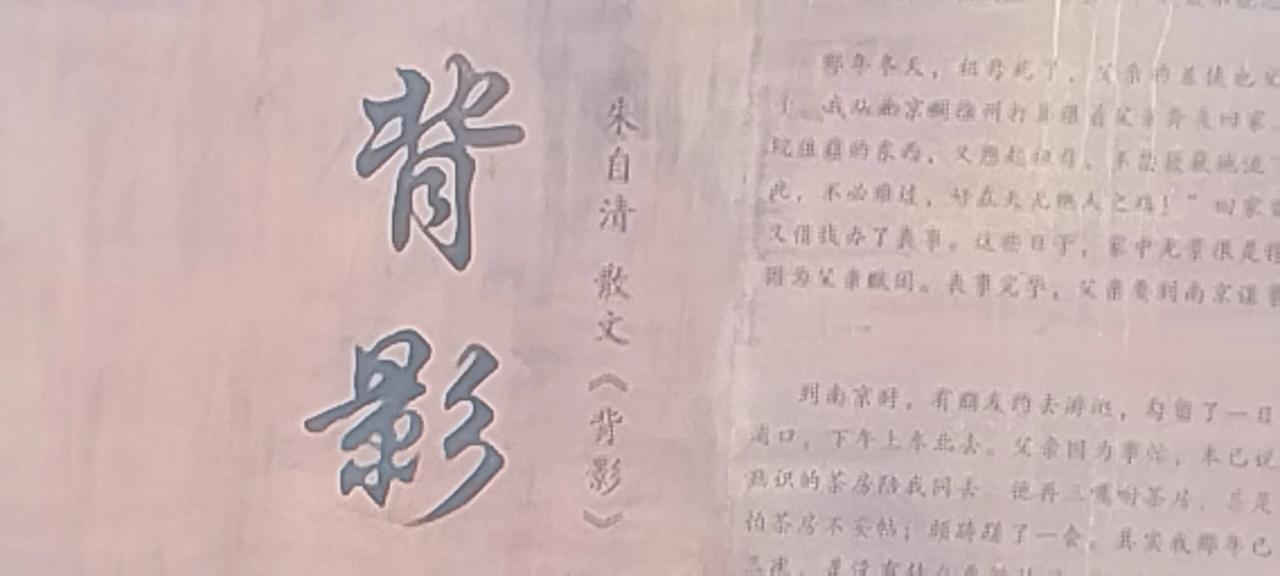 背影
朱自清 散文《背影》
那年冬天，祖母死了，父亲的差使也交
了，我从北京到徐州打算跟着父亲奔丧回家。
院狼藉的东西，又想起祖母，不禁簌簌地流下
此，不必难过，好在天无绝人之路！”回家
又借钱办了丧事。这些日子，家中光景很是
因为父亲赋闲。丧事完毕，父亲要到南京谋事
到南京时，有朋友约去游逛，勾留了一日
浦口，下午上车北去。父亲因为事忙，本已说
熟识的茶房陪我同去 他再三嘱咐茶房，甚是
怕茶房不妥帖；颇踌躇了一会。其实我那年已